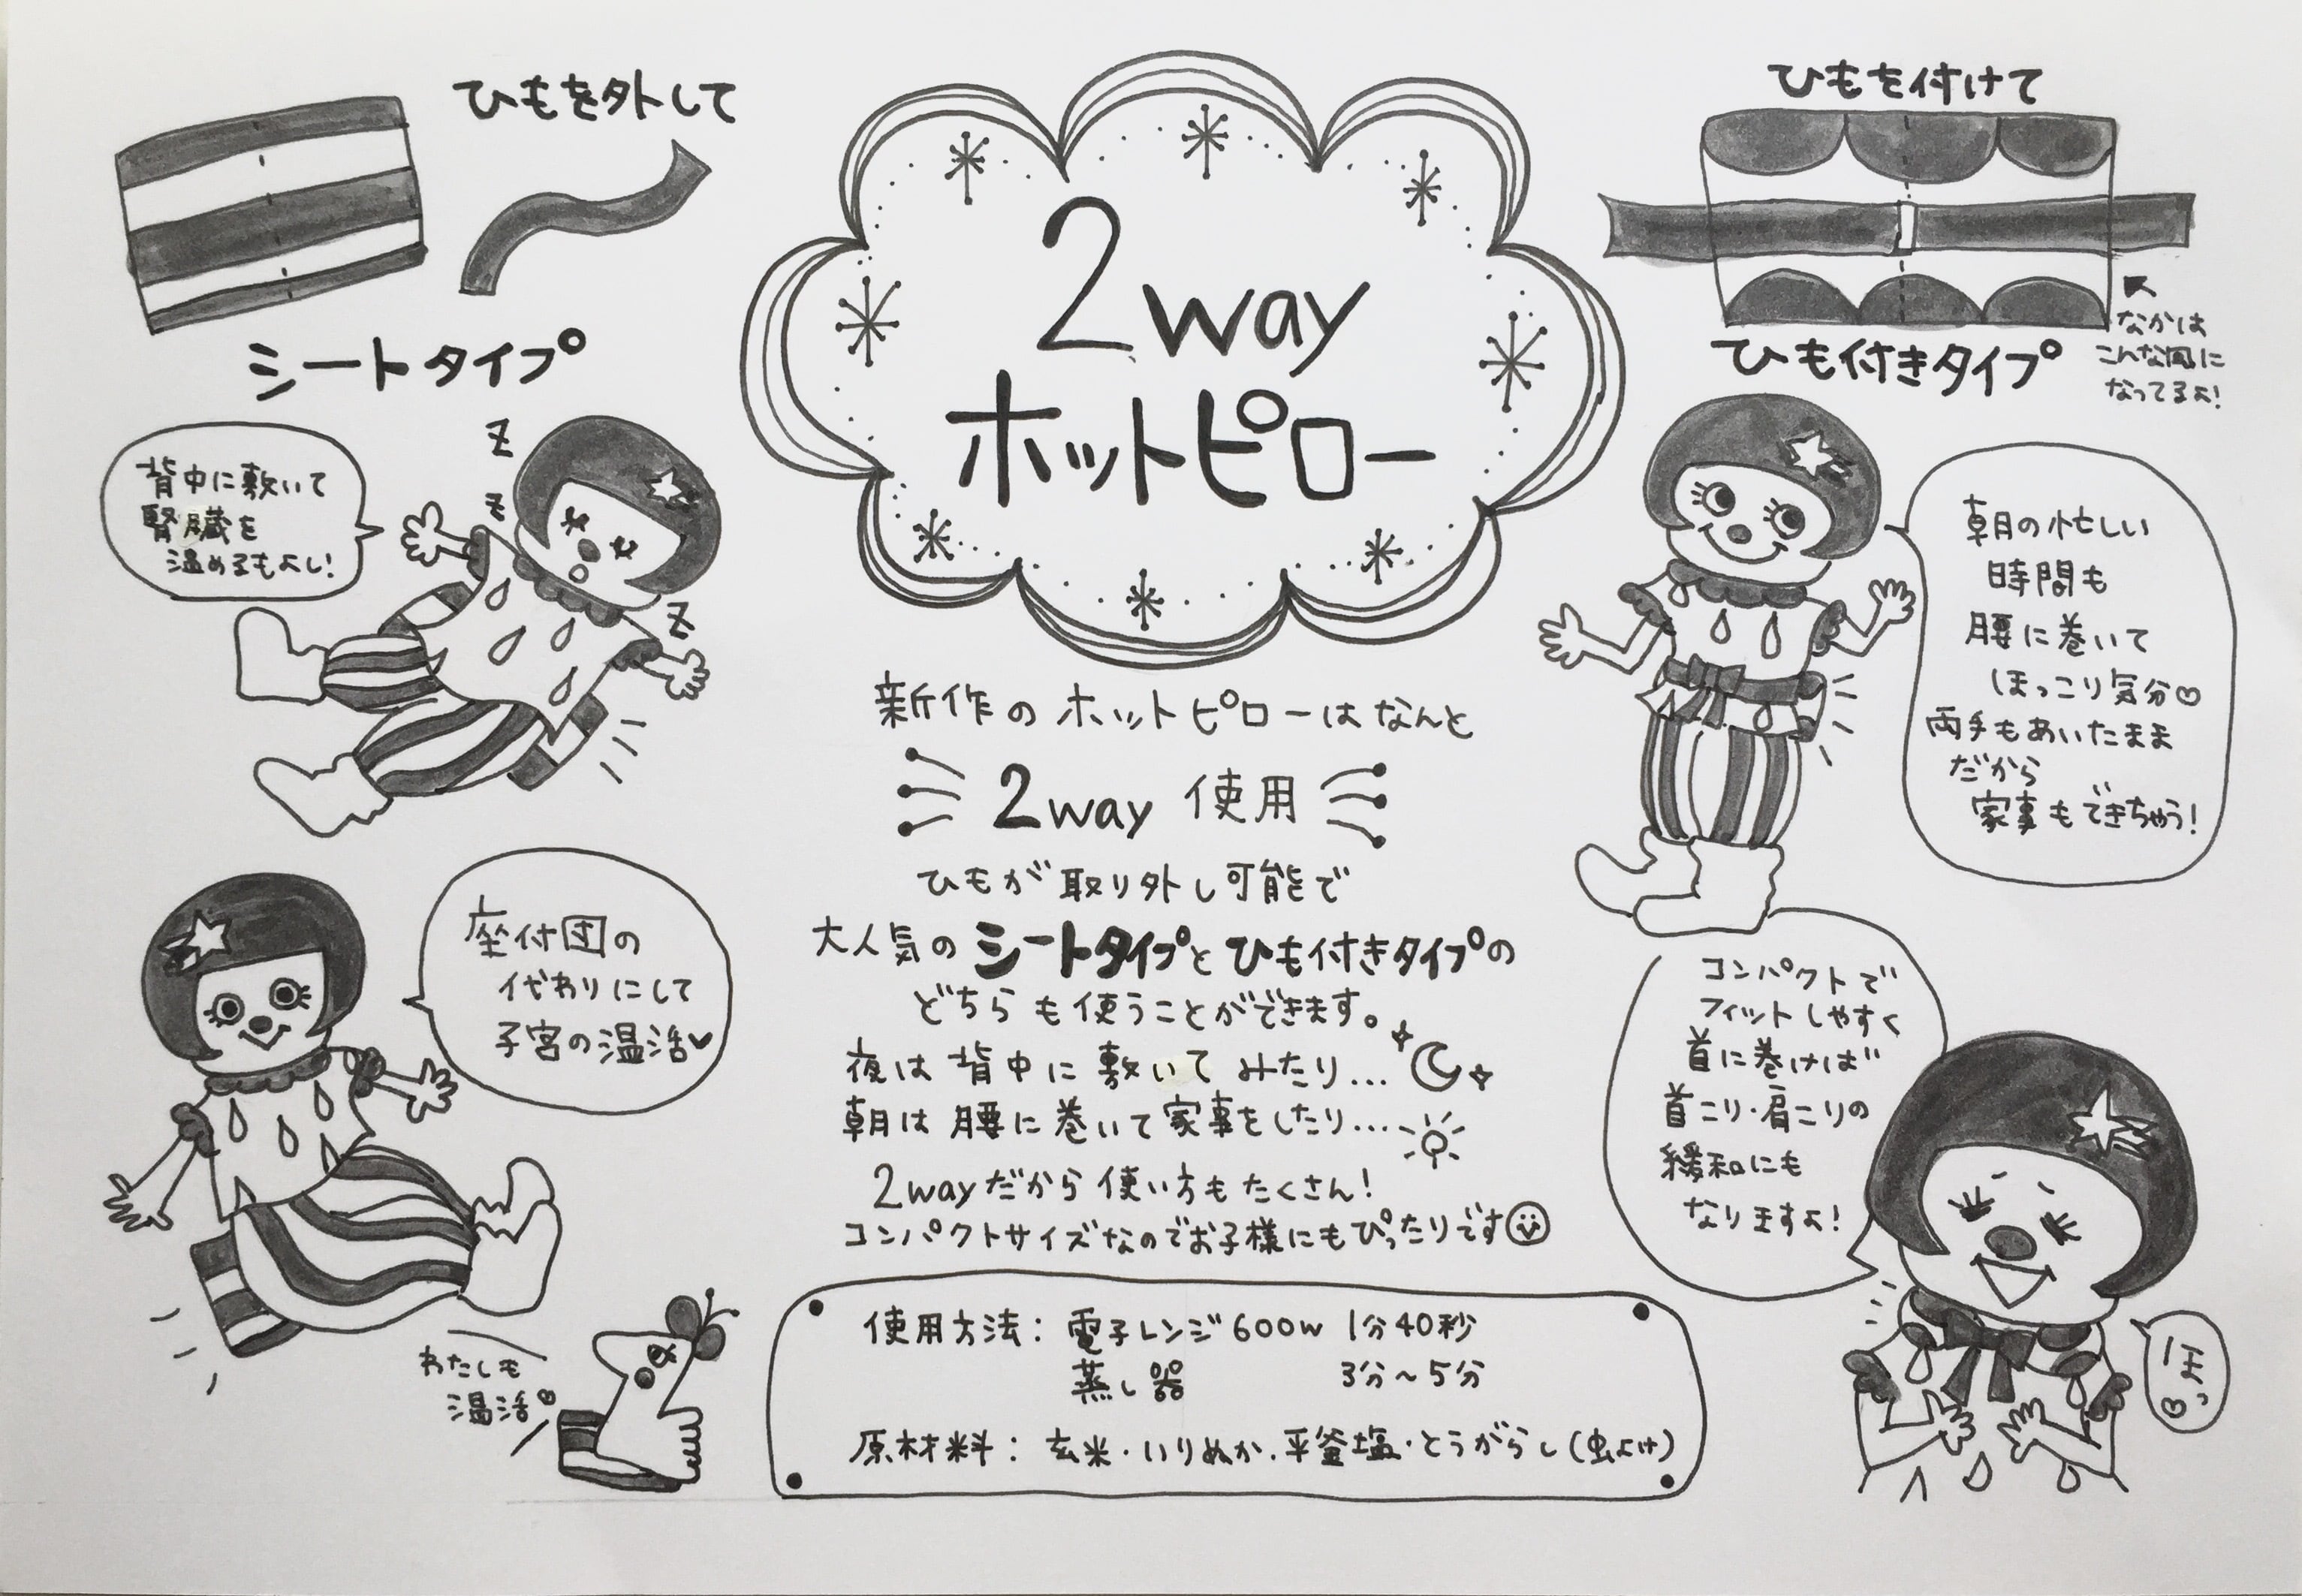 2way
ホットピロー
ひもを外して
シートタイプ
背中に敷いて
腎臓を
温めるもよし!
z
z
z
座付団の
代わりにして
子宮の温活♥
わたしも
温活♡
新作のホットピローはなんと
2way 使用
ひもが取り外し可能で
大人気のシートタイプとひも付きタイプの
どちらも使うことができます。
夜は背中に敷いてみたり...
朝は腰に巻いて家事をしたり...
2wayだから使い方もたくさん!
コンパクトサイズなのでお子様にもぴったりです
使用方法:電子レンジ600w 1分40秒
蒸し器 3分~5分
原材料:玄米・いりぬか・平釜塩・とうがらし(虫よけ)
ひもを付けて
なかは
こんな風に
なってるよ!
ひも付きタイプ
朝の忙しい
時間も
腰に巻いて
ほっこり気分♡
両手もあいたまま
だから
家事もできちゃう!
コンパクトで
フィットしやすく
首に巻けば
首こり・肩こりの
緩和にも
なりますよ!
ほっ♡